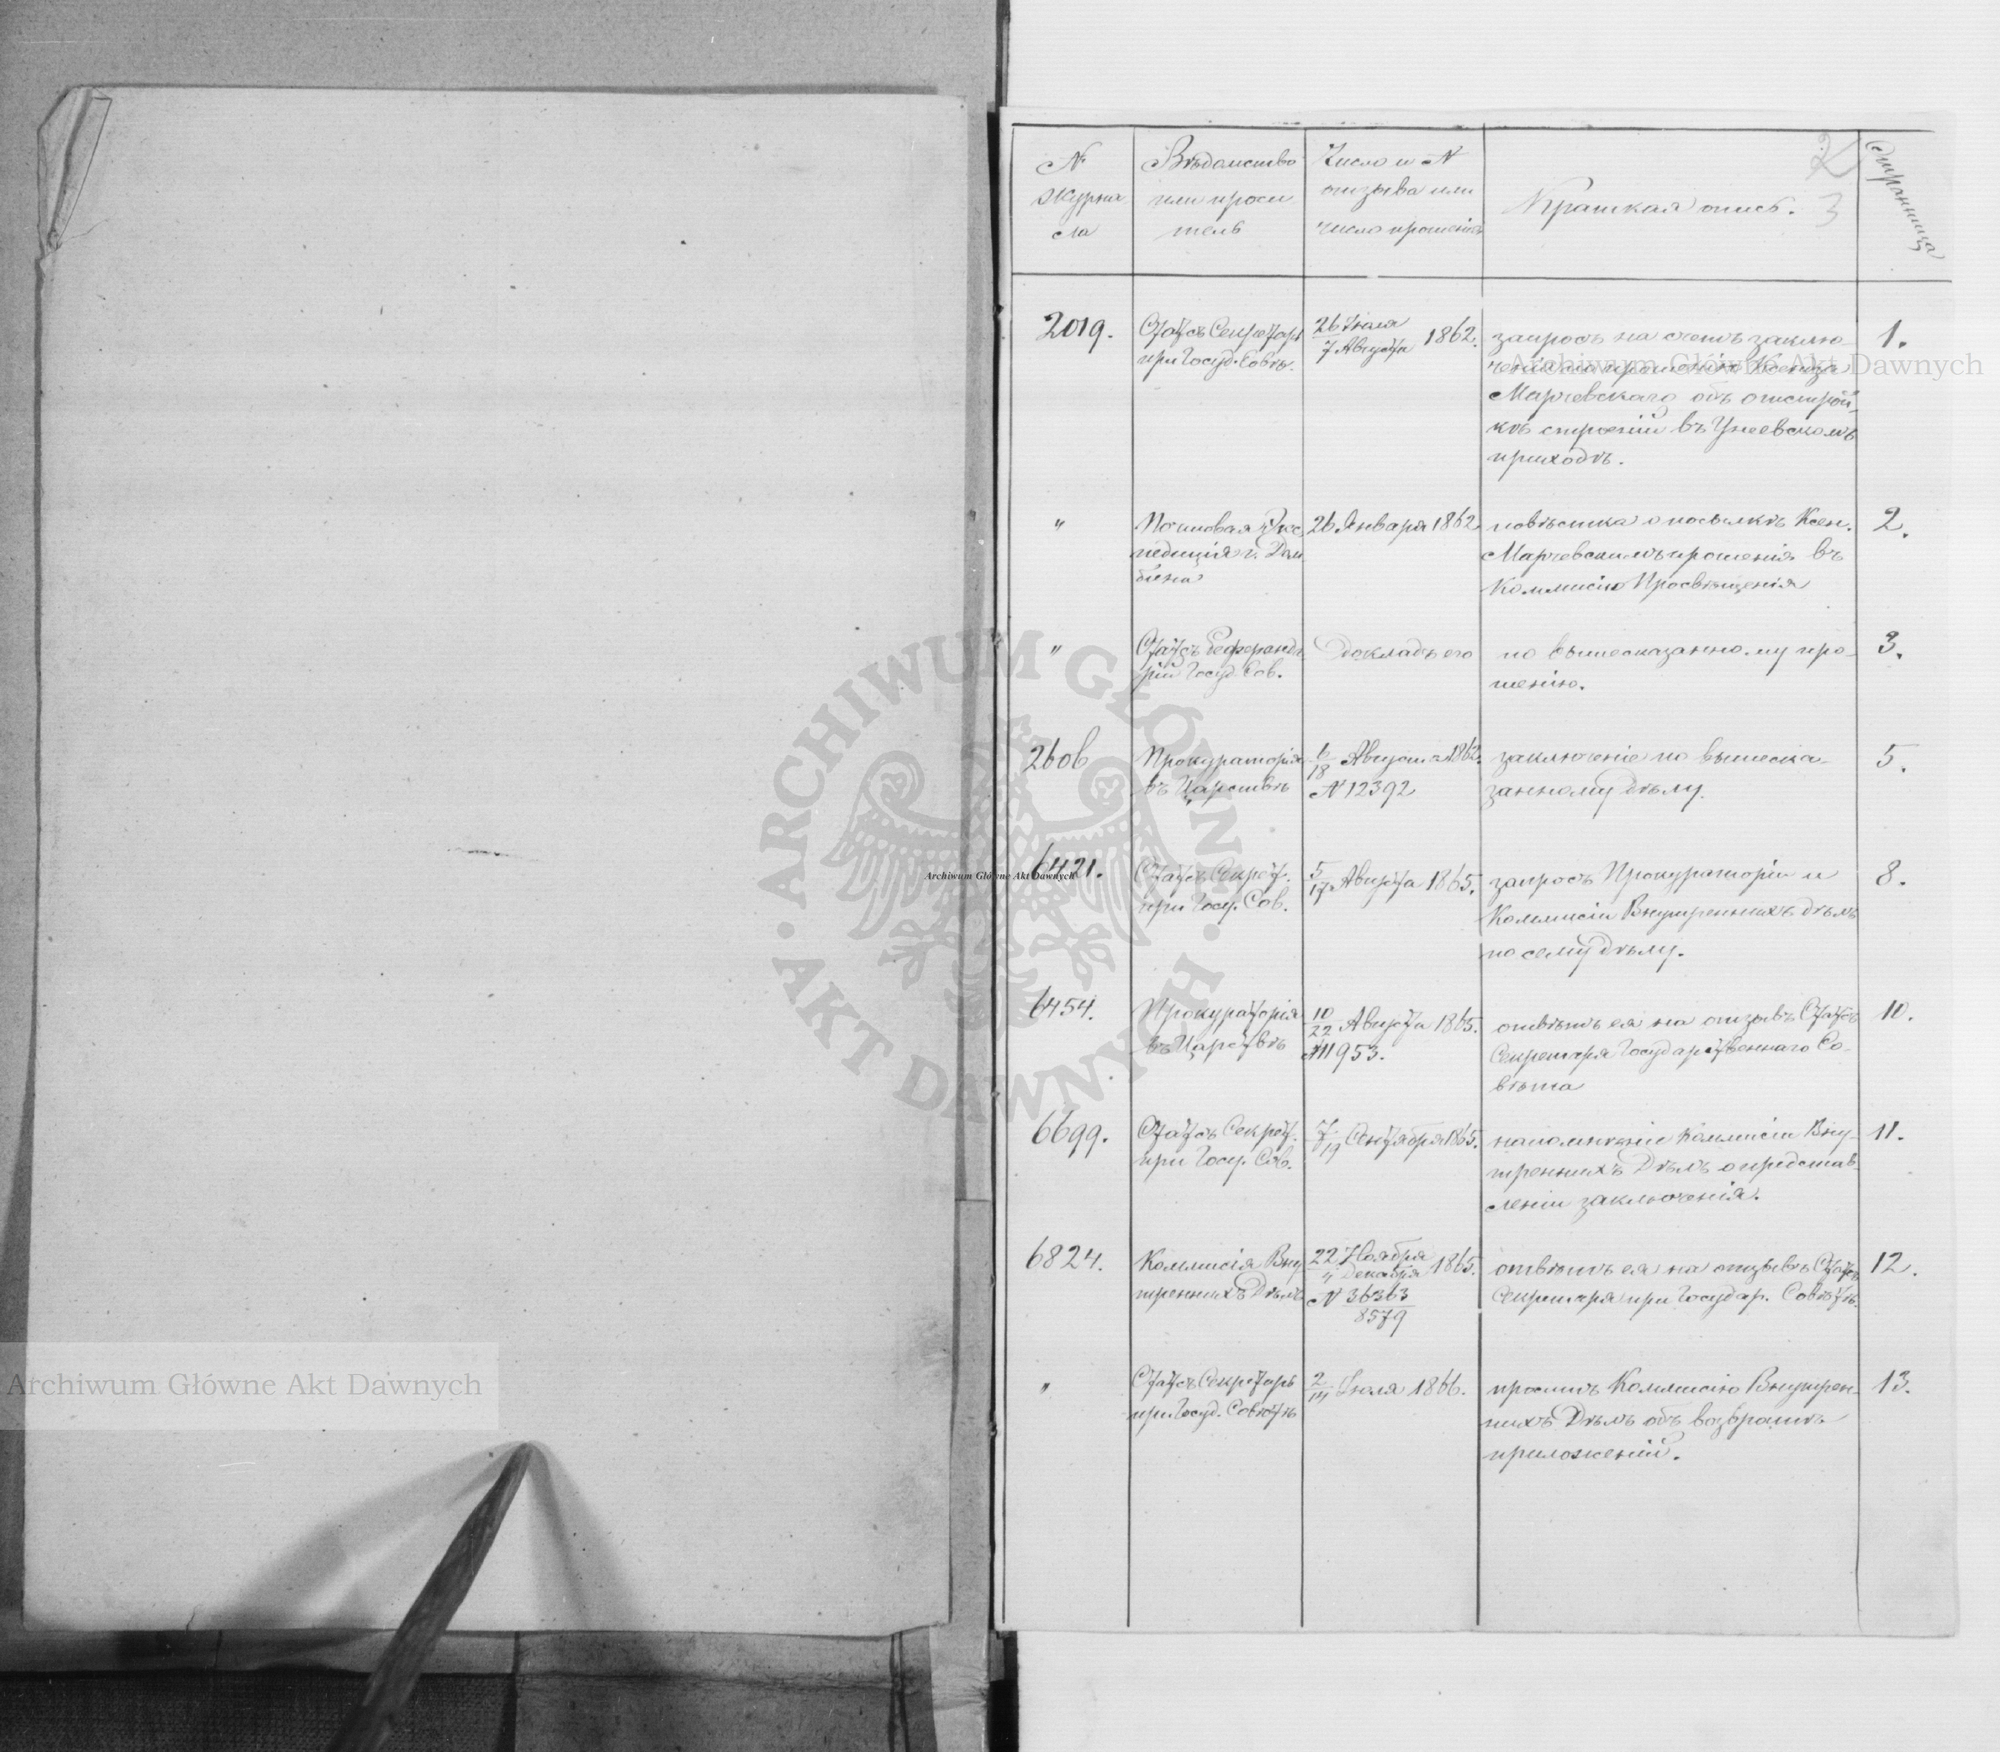 № журна
ла
Вѣдомство
или проси
тель
Число и №
отзыва или
число прошенія
Краткая опись.
Страница
2
3
2019.
Статсъ Секретарь
при Госуд. Совѣ.
26 Іюля
7 Августа 1862.
запросъ на счетъ заклю-
ченія по прошенію Ксендза
Марчевскаго объ отстрой-
кѣ строеній въ Унеевскомъ
приходѣ.
1.
"
Почтовая Экс
педиція г. Дом
бѣна
26 Января 1862
повѣстка о посылкѣ Ксен.
Марчевскимъ прошенія въ
Коммисію Просвѣщенія
2.
"
Статсъ Референда
рій Госуд. Сов.
Докладъ его
по вышесказанному про-
шенію.
3.
2606
Прокураторія
въ Царствѣ
6/18 Августа 1862.
№ 12392
заключеніе по вышеска-
занному дѣлу.
5.
6421.
Статсъ Секрет.
при Госу. Сов.
5/17 Августа 1865.
запросъ Прокураторіи и
Коммисіи Внутреннихъ дѣлъ
по сему дѣлу.
8.
6454.
Прокураторія
въ Царствѣ
10/22 Августа 1865.
№ 11953.
отвѣтъ ея на отзывъ Статсъ
Секретаря Государственнаго Со-
вѣта
10.
6699.
Статсъ Секрет.
при Госу. Сов.
7/19 Сентября 1865.
напомнѣніе Коммисіи Вну-
треннихъ Дѣлъ о представ-
леніи заключенія.
11.
6824.
Коммисія Вну
треннихъ Дѣлъ
22 Ноября
4 Декабря 1865.
№ 36363
8579
отвѣтъ ея на отзывъ Статсъ
Секретаря при Государ. Совѣтѣ.
12.
"
Статсъ Секретарь
при Госуд. Совѣтѣ
2/14 Іюля 1866.
проситъ Коммисію Внутрен-
нихъ Дѣлъ объ возвратѣ
приложеній.
13.
Archiwum Główne Akt Dawnych
Archiwum Główne Akt Dawnych
Archiwum Główne Akt Dawnych
ARCHIWUM GŁÓWNE
AKT DAWNYCH